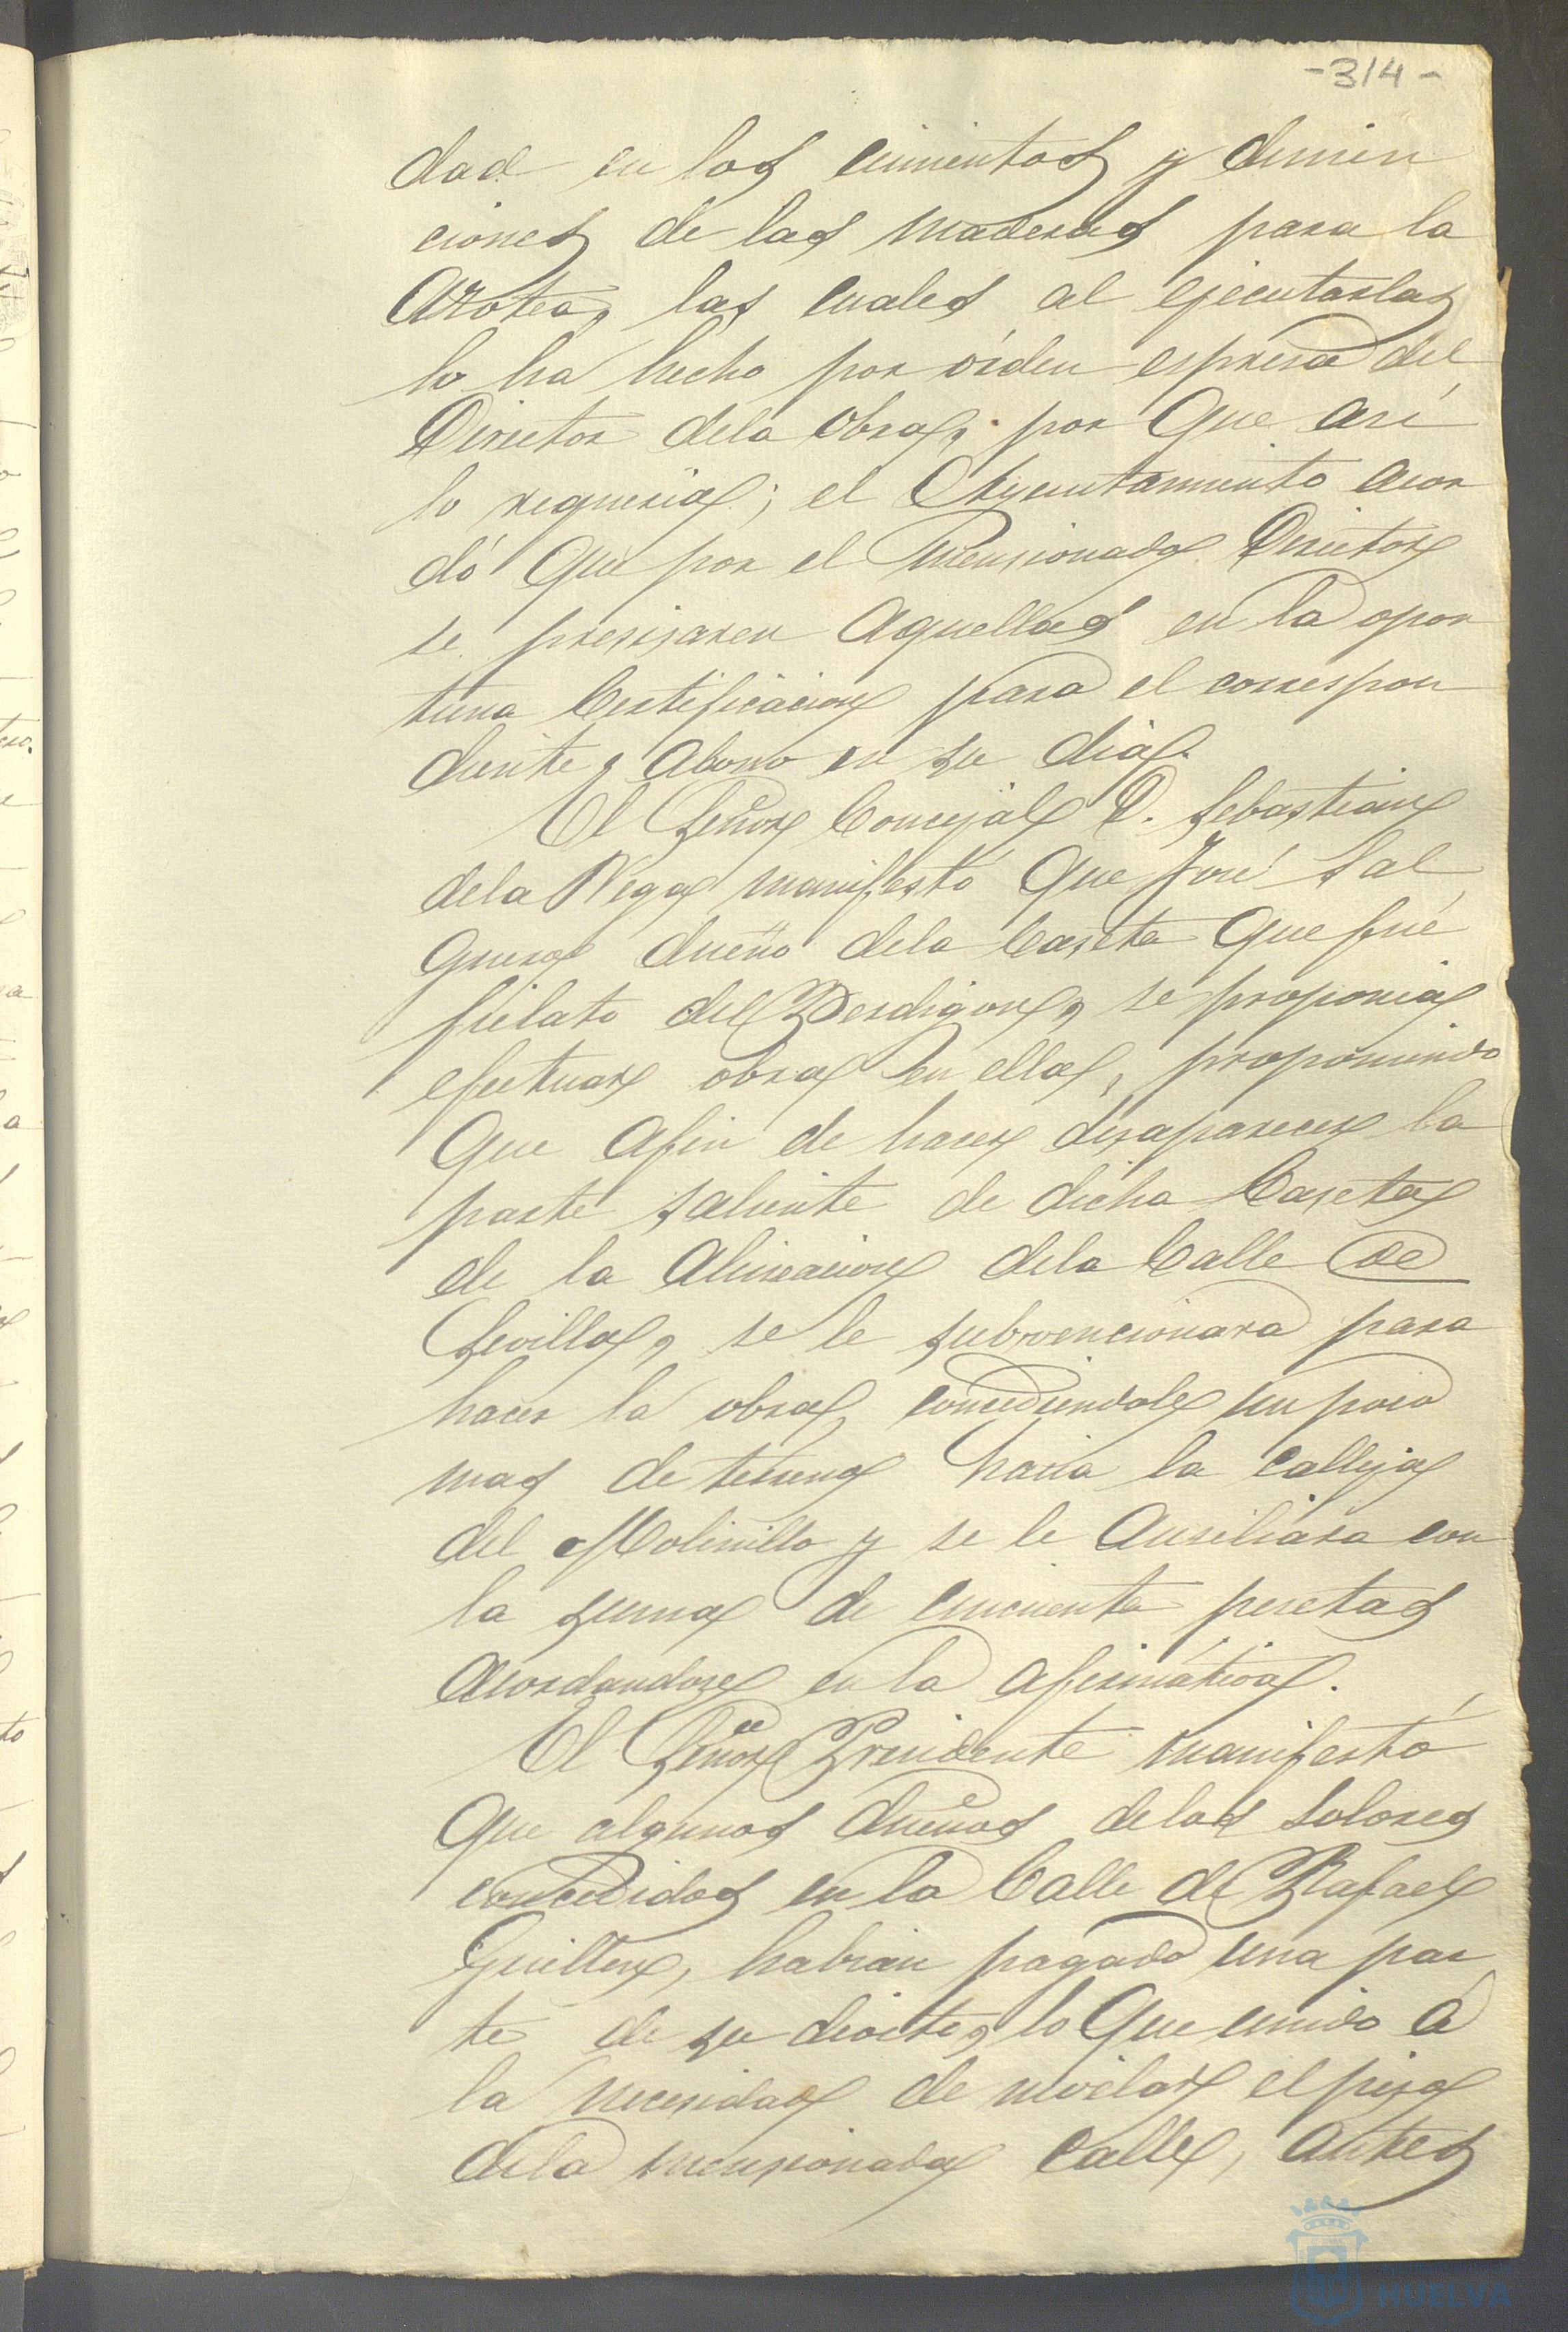 -314-
dad en los cimientos y dimen
ciones de las maderas para la
Azotea, las cuales al ejecutarlas
lo ha hecho por orden espresa del
Director dela Obra, por que asi
lo requeria; el Ayuntamiento acor
dó que por el mensionado Director
se presisaren aquellas en la opor
tuna Certificacion para el correspon
diente, abono en su dia.
El Señor Concejal D. Sebastian
dela Vega manifestó que José Sal
guero dueño dela Caseta que fué
fielato del Perdigon, se proponia
efectuar obra en ella, proponiendo
que afin de hacer desaparecer la
parte saliente de dicha Caseta
de la Alineacion dela Calle de
Sevilla, se le subvencionara para
hacer la obra, concediendole un poco
mas de terreno hacia la calleja
del Molinillo y se le Ausiliara con
la suma de cincuenta pesetas
Acordandose en la afirmativa.
El Señor Presidente manifestó
que algunos dueños delos Solores
concedidos en la Calle de Rafael
Guillen, habian pagado una par
te de su deviito, lo que unido á
la necesidad de nivelar el piso
dela mensionada Calle, antes
HUELVA